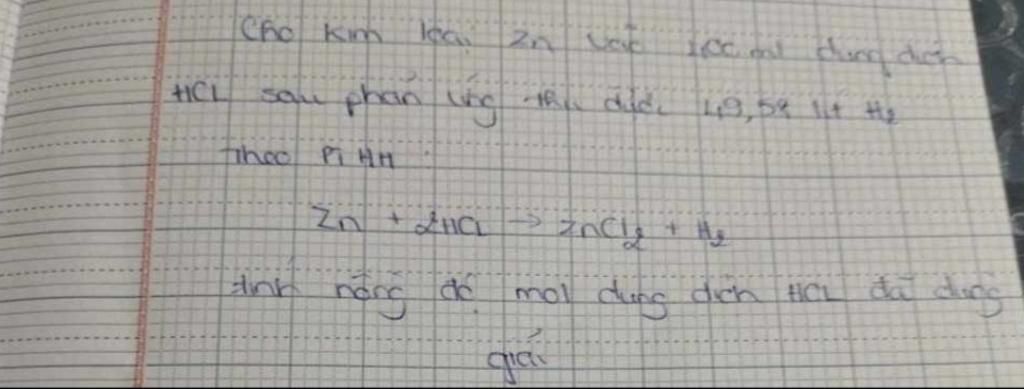 Cho kim loại Zn vào 100 ml dung dịch
HCl sau phản ứng thu được 49,58 lít H₂
Theo PTHH:
Zn + 2HCl → ZnCl₂ + H₂
tính nồng độ mol dung dịch HCL đã dùng
giải